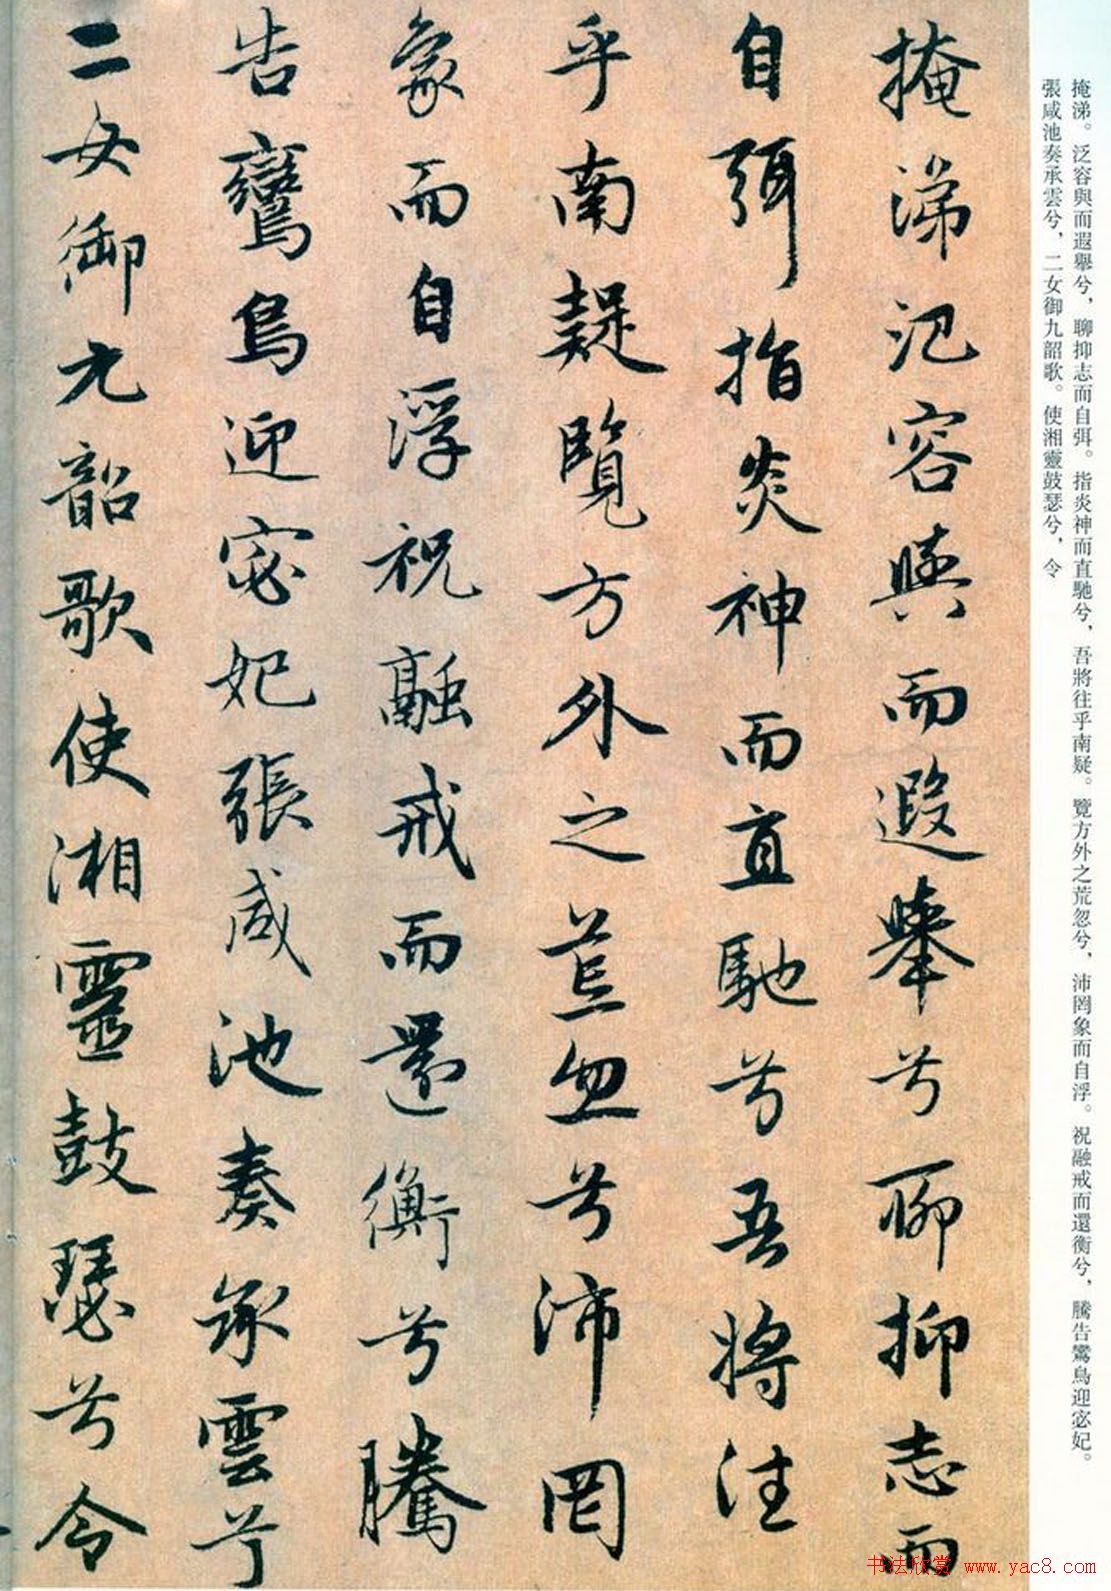 掩涕。泛容與而遐舉兮，聊抑志而自弭。指炎神而直馳兮，吾將往乎南疑。覽方外之荒忽兮，沛罔象而自浮。祝融戒而還衡兮，騰告鸞鳥迎宓妃。
張咸池奏承雲兮，二女御九韶歌。使湘靈鼓瑟兮，令
掩涕氾容與而遐舉兮聊抑志而
自弭指炎神而直馳兮吾將往
乎南疑覽方外之荒忽兮沛罔
象而自浮祝融戒而還衡兮騰
告鸞鳥迎宓妃張咸池奏承雲兮
二女御九韶歌使湘靈鼓瑟兮令
书法欣赏 www.yac8.com